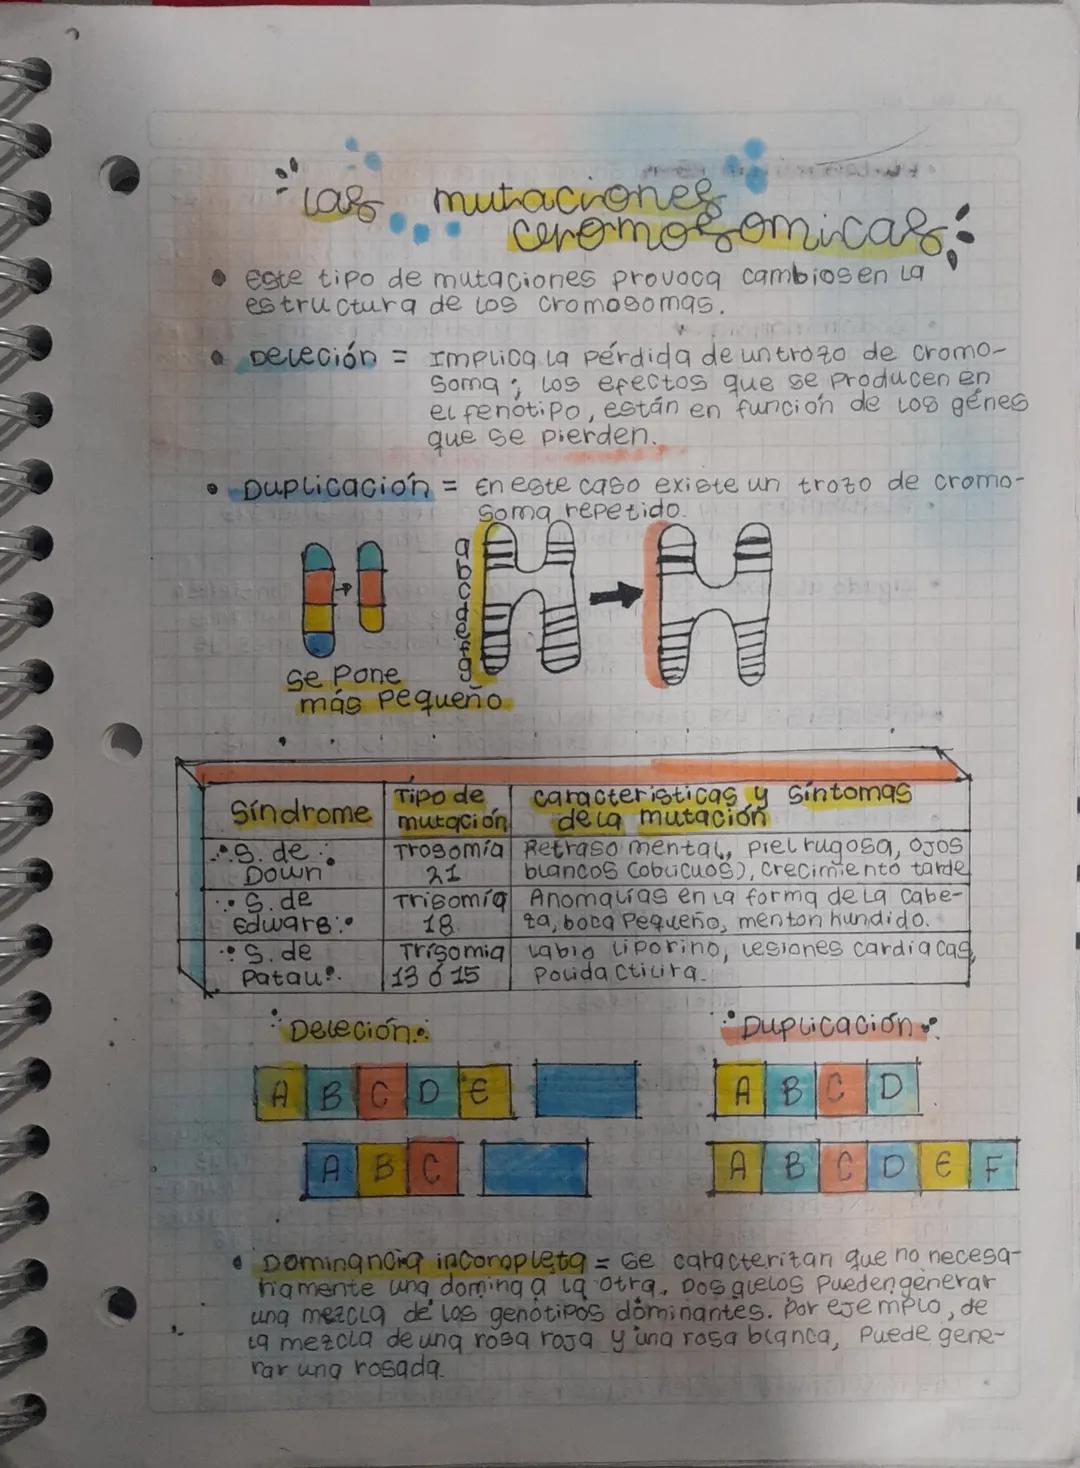 Las mutaciones
cromosomicas
• Este tipo de mutaciones provoca cambios en la
estructura de los cromosomas.
• Deleción = Implica la pérdida de un trozo de cromo-
soma; los efectos que se producen en
el fenotipo, están en función de los génes
que se pierden.
• Duplicación = En este caso existe un trozo de cromo-
soma repetido.
a
b
c
d
e
f
g
se pone
más pequeño
Síndrome
Tipo de
mutación
características y síntomas
de la mutación
S. de
Down
Trosomía
21
Retraso mental, piel rugosa, ojos
blancos (oblicuos), crecimiento tarde
S. de
Edwars
Trisomía
18
Anomalías en la forma de la cabe-
za, boca pequeño, menton hundido.
S. de
Patau
Trisomia
13 ó 15
Labio liporino, lesiones cardíacas,
Polidactilita.
Deleción
Duplicación
A B C D E
A B C D
A B C
A B C D E F
• Dominancia incompleta = se caracterizan que no necesa-
riamente una domina a la otra. Dos alelos pueden generar
una mezcla de los genotipos dominantes. Por ejemplo, de
la mezcla de una rosa roja y una rosa blanca, puede gene-
rar una rosada.